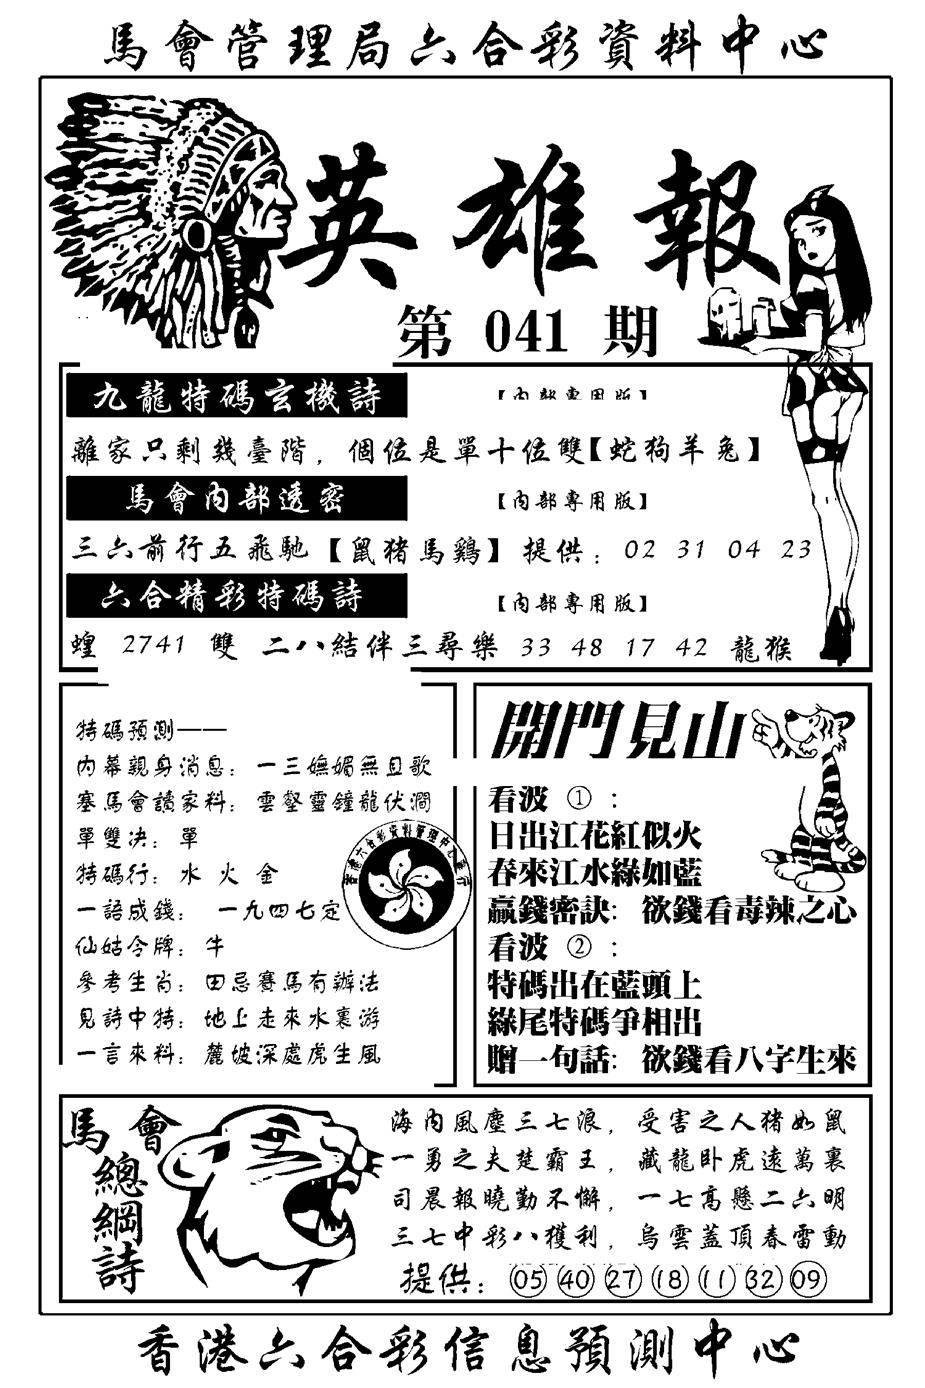 馬會管理局六合彩資料中心
英雄報
第 041 期
九龍特碼玄機詩
離家只剩幾臺階，個位是單十位雙【蛇狗羊兔】
馬會內部透密 【內部專用版】
三六前行五飛馳【鼠猪馬鷄】提供：02 31 04 23
六合精彩特碼詩 【內部專用版】
蝗 2741 雙 二八結伴三尋樂 33 48 17 42 龍猴
特碼預測——
內幕親身消息：一三嫵媚無且歌
塞馬會讀家料：雲壑靈鐘龍伏澗
單雙决：單
特碼行：水 火 金
一語成錢： 一九四七定
仙姑令牌：牛
參考生肖：田忌賽馬有辦法
見詩中特：地上走來水裏游
一言來料：麓坡深處虎生風
香港六合彩資料管理中心發行
開門見山
看波 ①：
日出江花紅似火
春來江水綠如藍
贏錢密訣：欲錢看毒辣之心
看波 ②：
特碼出在藍頭上
綠尾特碼爭相出
贈一句話：欲錢看八字生來
馬會
總綱詩
海內風塵三七浪，受害之人猪如鼠
一勇之夫楚霸王，藏龍卧虎遠萬裏
司晨報曉勤不懈，一七高懸二六明
三七中彩八獲利，烏雲蓋頂春雷動
提供：05 40 27 18 11 32 09
香港六合彩信息預測中心